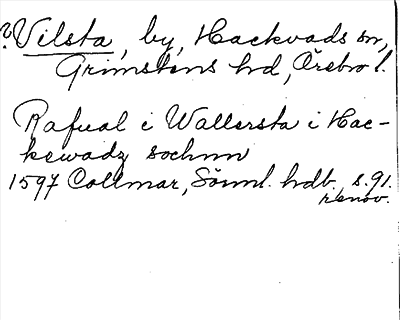 ?Vilsta, by, Hackvads sn,
Grimstens hd, Örebro l.
Rafual i Wallersta i Hac-
kewadz sochnn
1597 Collmar, Sörml. hdb., s. 91.
renov.